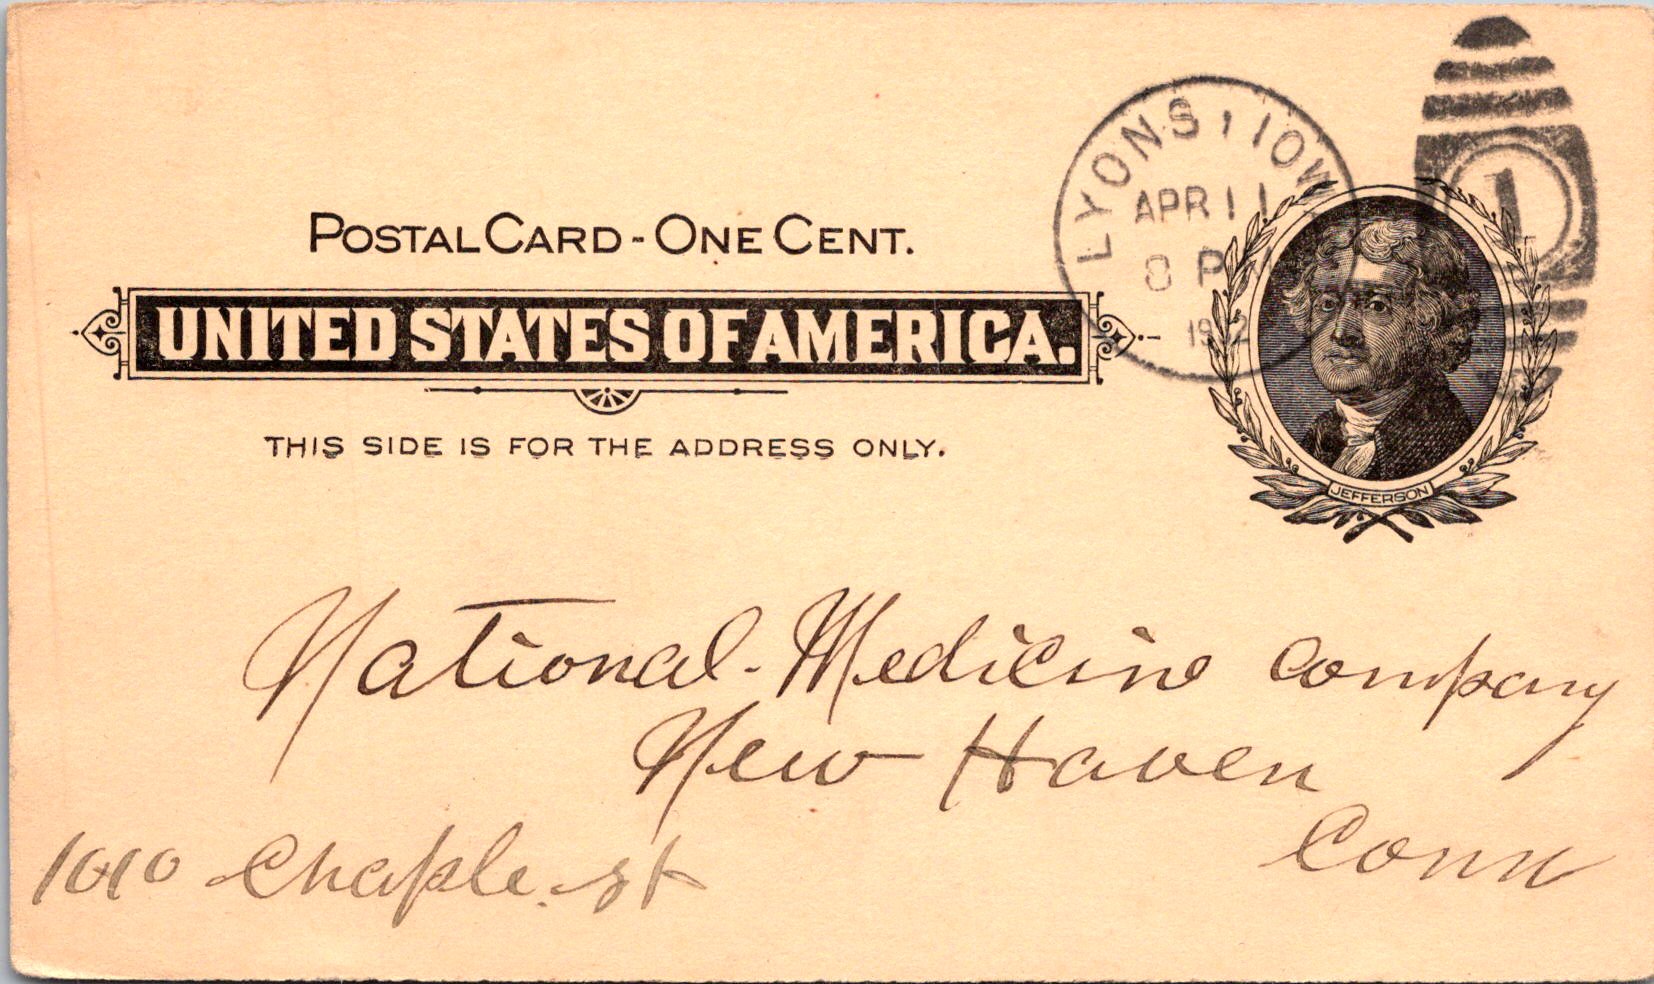 LYONS, IOW
APR 11
8 P
1902
1
POSTAL CARD - ONE CENT.
UNITED STATES OF AMERICA.
THIS SIDE IS FOR THE ADDRESS ONLY.
JEFFERSON
National Medicine Company
New Haven
Conn
1010 Chaple. st